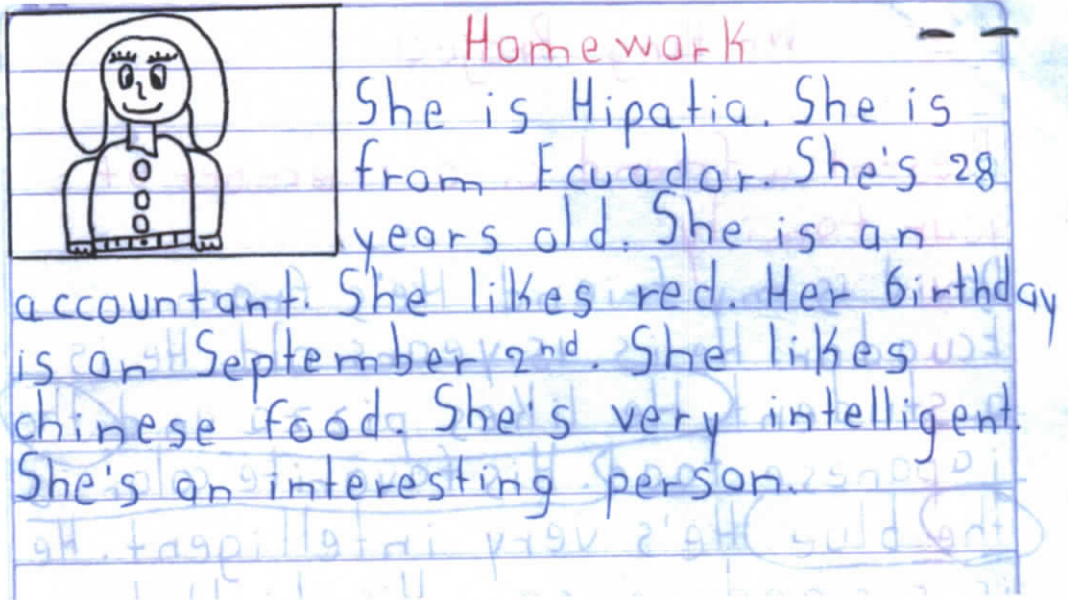 Homework
She is Hipatia. She is
from Ecuador. She's 28
years old. She is an
accountant. She likes red. Her birthday
is on September 2nd. She likes
chinese food. She's very intelligent.
She's an interesting person.